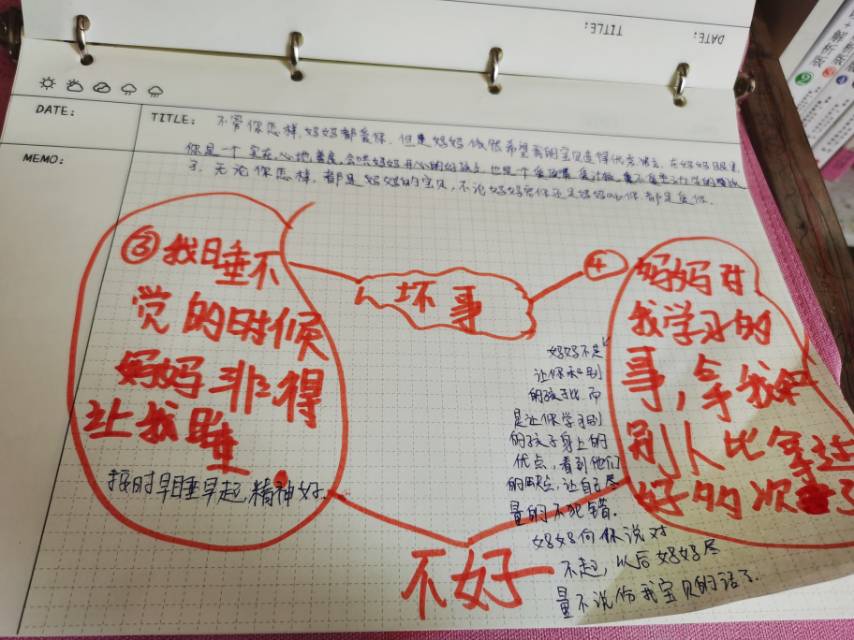 TITLE:
DATE:
DATE:
TITLE: 不管你怎样,妈妈都爱你.但是妈妈依然希望我的宝贝变得优秀
你是一个实在,心地善良,会哄妈妈开心的好孩子,也是个
子.无论你怎样,都是妈妈的宝贝,不论妈妈 你还是 你,都是爱你.
MEMO:
③我睡不
觉的时候
妈妈非得
让我睡
按时早睡早起,精神好.
坏事
④妈妈对
我学习的
事,拿我和
别人比拿过
好的次 了
妈妈不是
让你和别
的孩子比,而
是让你学习别
的孩子身上的
优点,看到他们
的缺点,让自己尽
量的不犯错.
妈妈向你说对
不起,以后妈妈尽
量不说伤我宝贝的话了.
不好